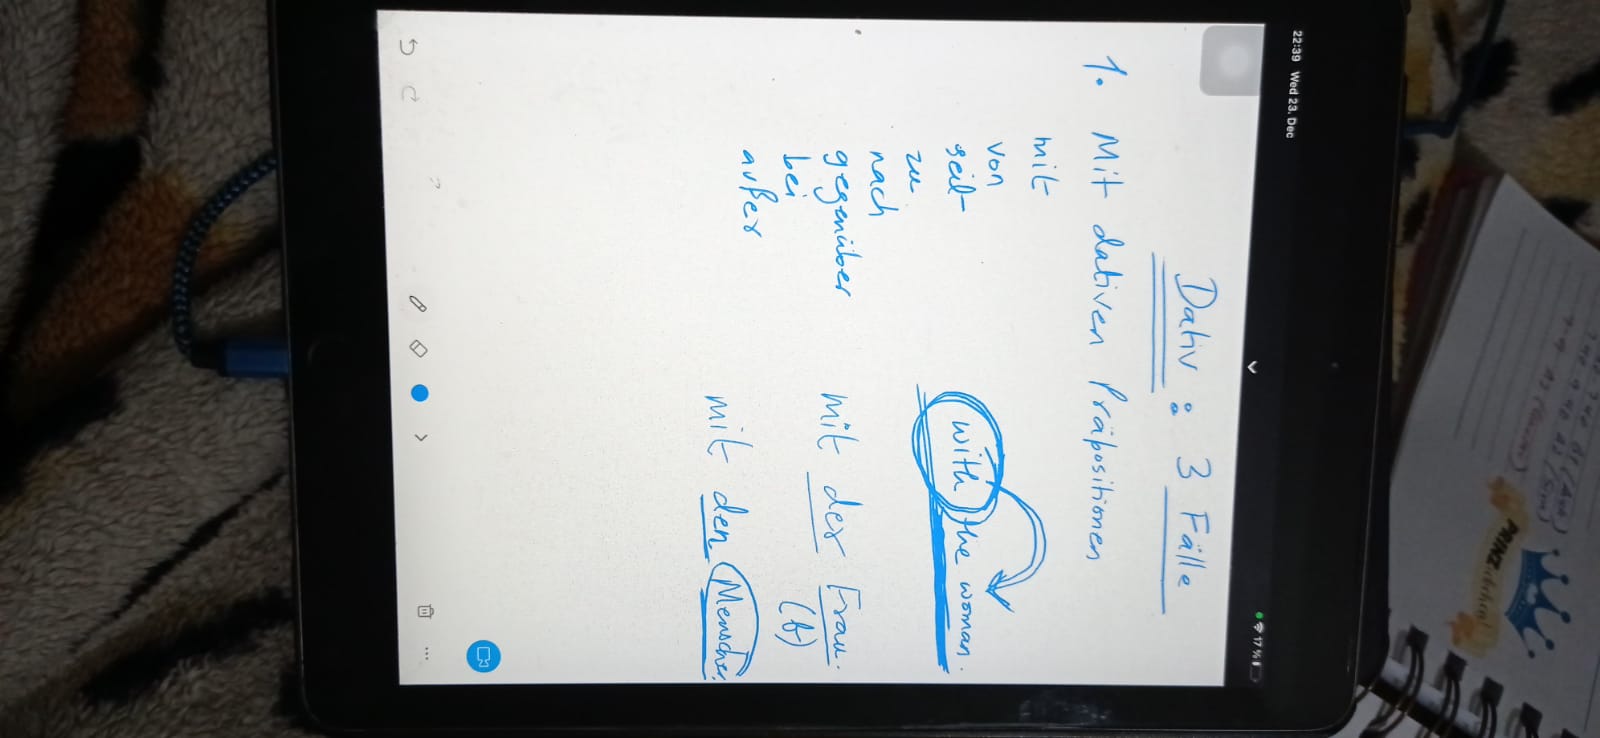 22:39 Wed 23. Dec
17 %
Dativ : 3 Fälle
1. Mit dativen Präpositionen
mit
von
seit
zu
nach
gegenüber
bei
außer
with the woman.
mit der Frau.
(f)
mit den Menschen.
PRINZ